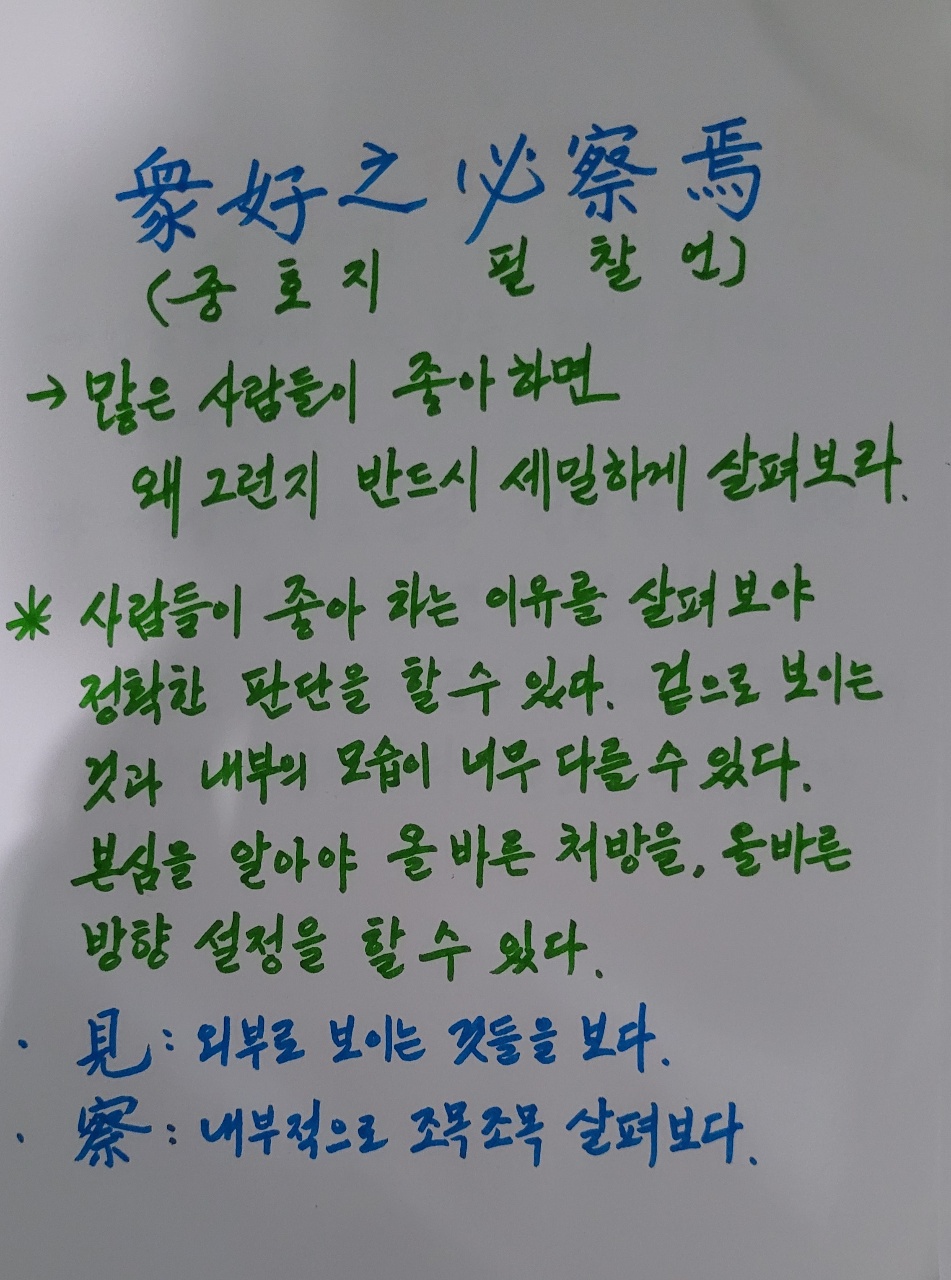 衆好之必察焉
(중호지 필찰언)
→ 많은 사람들이 좋아하면
왜 그런지 반드시 세밀하게 살펴보라.
* 사람들이 좋아 하는 이유를 살펴보야
정확한 판단을 할 수 있다. 겉으로 보이는
것과 내부의 모습이 너무 다를 수 있다.
본심을 알아야 올바른 처방을, 올바른
방향 설정을 할 수 있다.
· 見 : 외부로 보이는 것들을 보다.
· 察 : 내부적으로 조목조목 살펴보다.